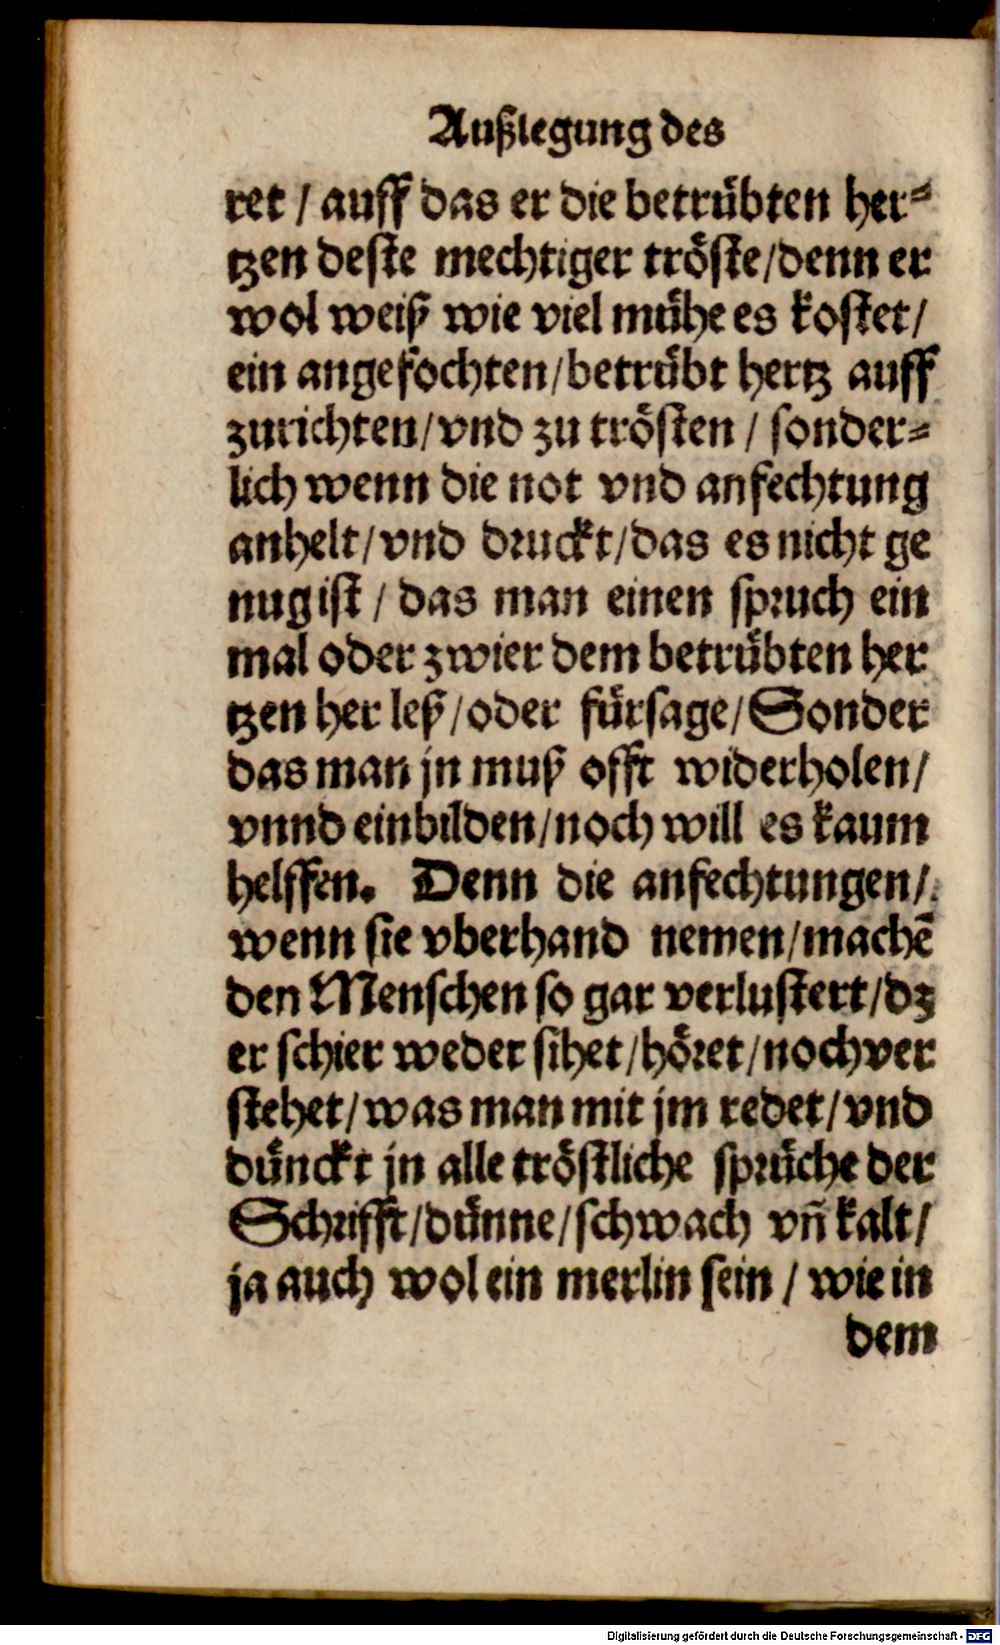 Außlegung des
ret / auff das er die betrübten her⸗
tzen deste mechtiger tröste/denn er
wol weiß wie viel mühe es kostet/
ein angefochten/betrübt hertz auff
zurichten/vnd zu trösten / sonder⸗
lich wenn die not vnd anfechtung
anhelt/vnd druckt/das es nicht ge
nug ist / das man einen spruch ein
mal oder zwier dem betrübten her
tzen her leß/oder fürsage/Sonder
das man jn muß offt widerholen/
vnnd einbilden/noch will es kaum
helffen. Denn die anfechtungen/
wenn sie vberhand nemen/machē
den Menschen so gar verlustert/dz
er schier weder sihet/höret/noch ver
stehet/was man mit jm redet/vnd
dünckt jn alle tröstliche sprüche der
Schrifft/dünne/schwach vñ kalt/
ja auch wol ein merlin sein / wie in
dem
Digitalisierung gefördert durch die Deutsche Forschungsgemeinschaft - DFG